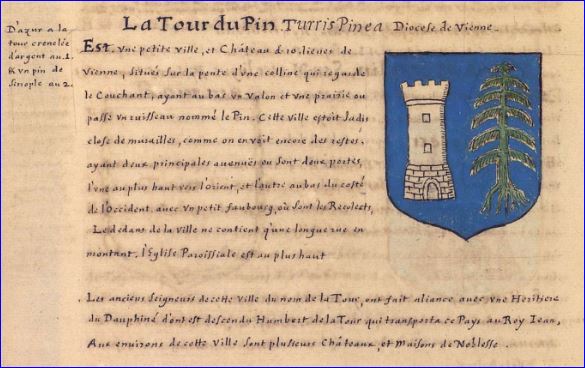 La Tour du Pin Turris Pinea Diocese de Vienne.
D'azur a la
tour crenelée
d'argent au .1.
& vn pin de
sinople au 2.
Est. vne petite ville, et Château à 10. lieues de
Vienne, situés sur la pente d'vne colline qui regarde
le Couchant, ayant au bas vn Valon et vne prairie ou
passe vn ruisseau nommé le Pin. Cette ville estoit Jadis
close de murailles, comme on en voit encore des restes.
ayant deux principales auenues ou sont deux portes,
l'vne au plus haut vers l'Orient, et l'autre au bas du costé
de l'Occident. auec vn petit faubourg, où sont les Recolects,
Le dedans de la ville ne contient q'vne longue rue en
montant. l'Eglise Paroissiale est au plus haut
Les anciens Seigneurs de cette ville du nom de la Tour, ont fait aliance auec vne Heritiere
du Dauphiné d'ont est descendu Humbert de la Tour qui transporta ce Pays au Roy Iean,
Aux enuirons de cette ville sont plusieurs Châteaux, et maisons de Noblesse.